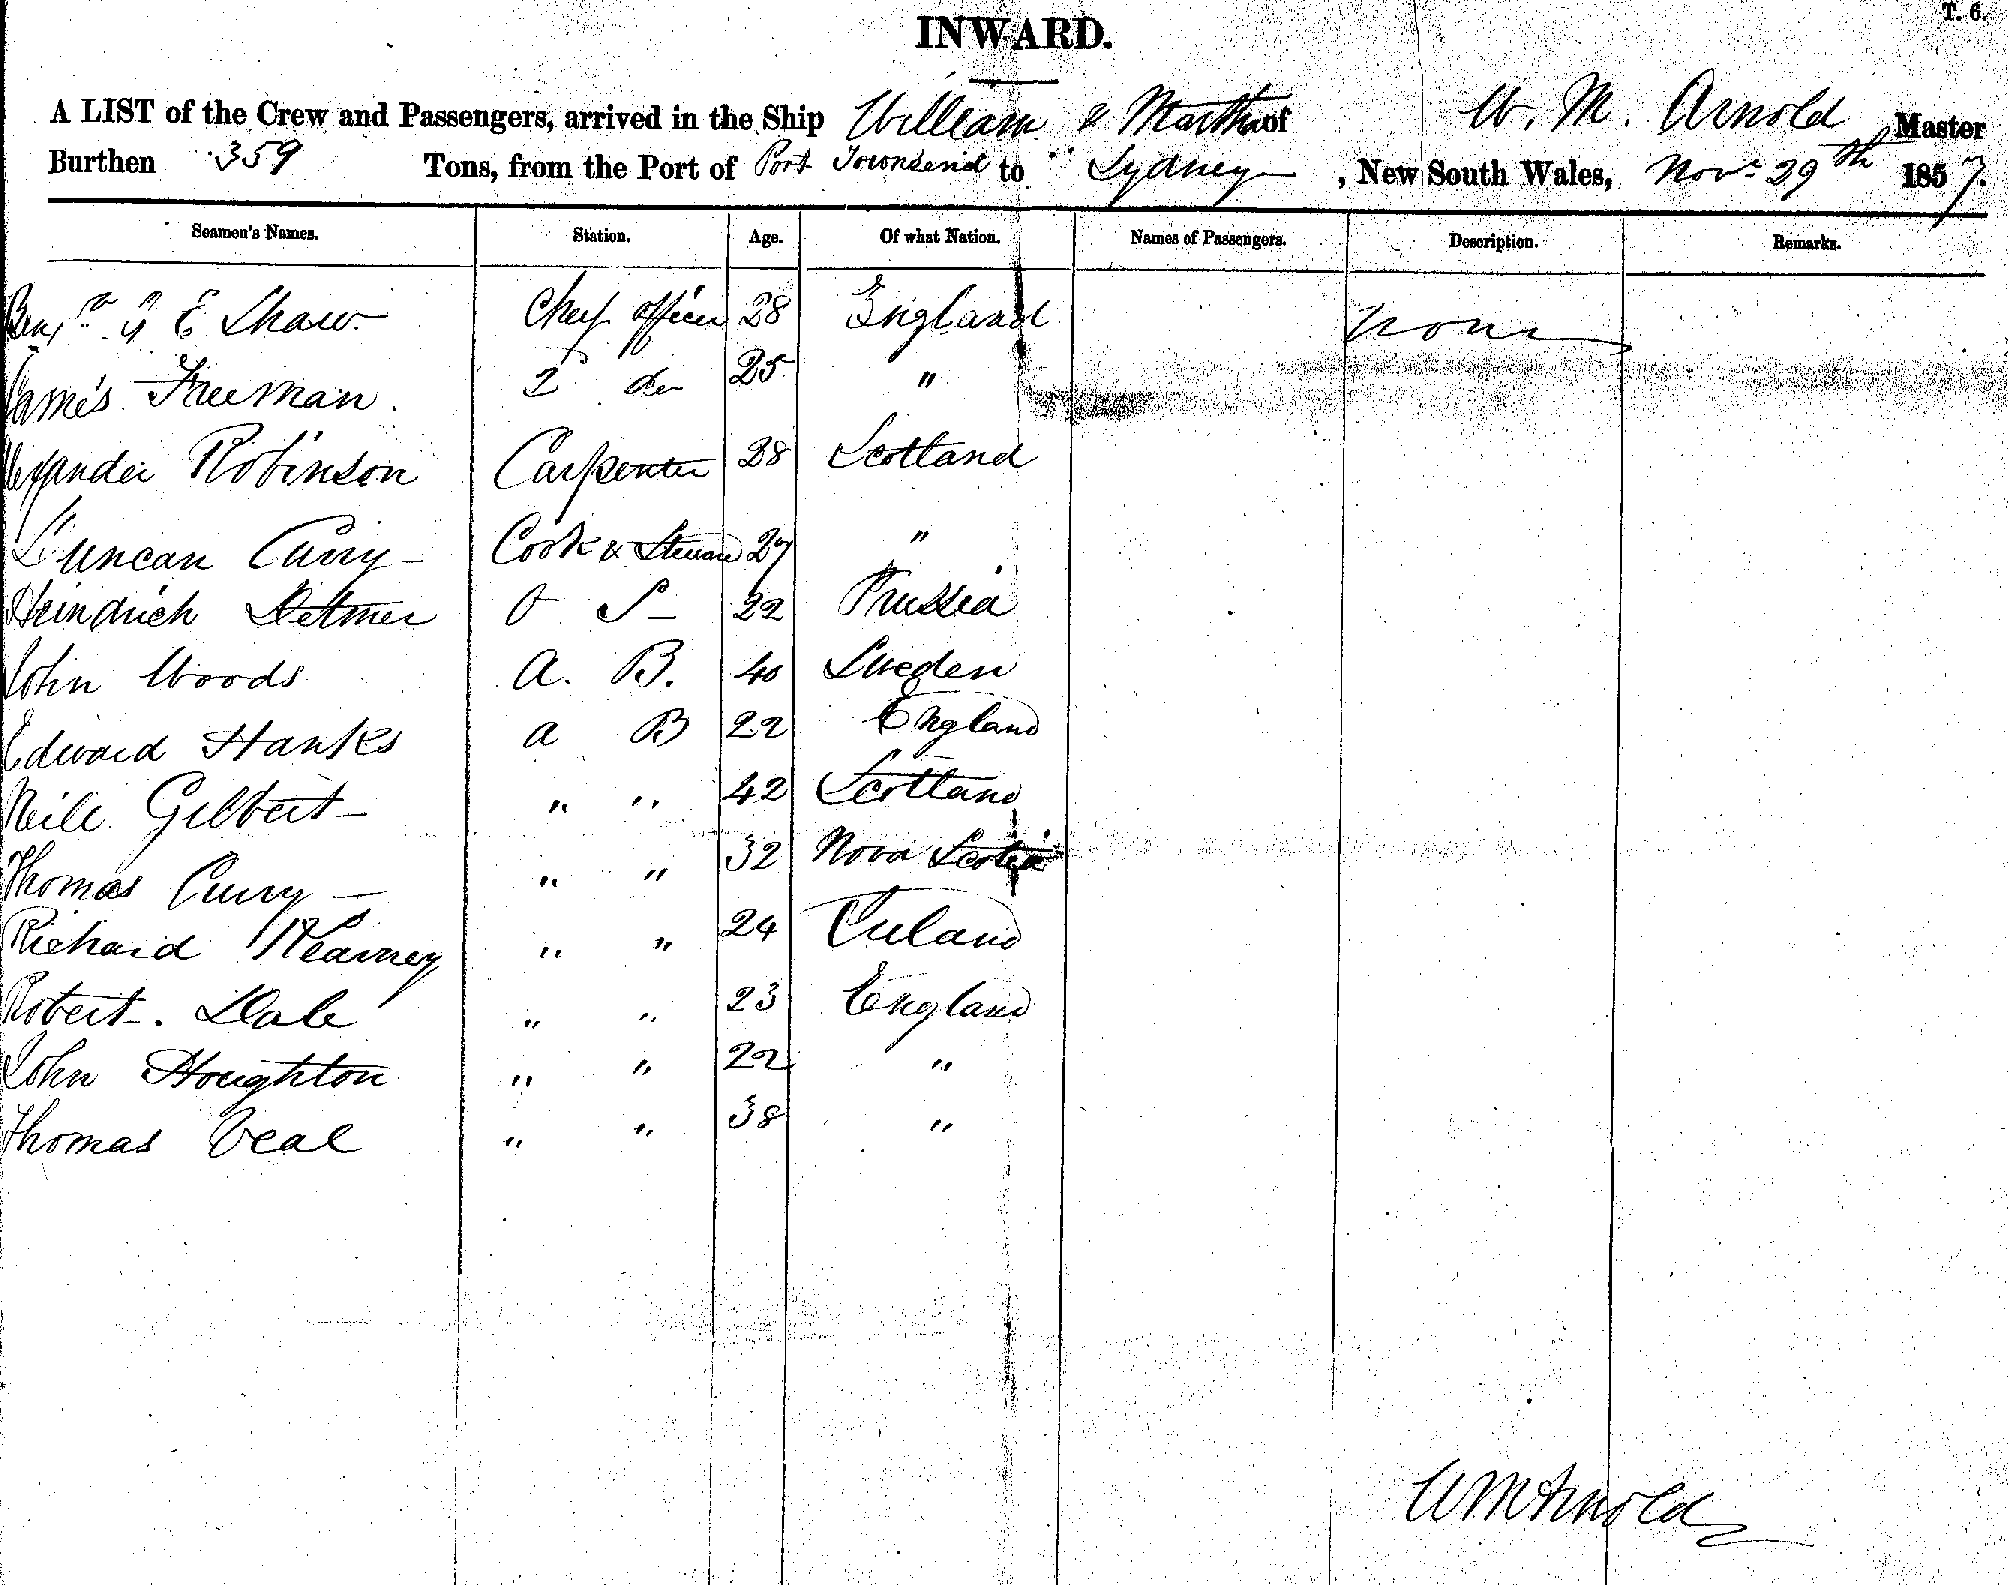 T. 6.
INWARD.
A LIST of the Crew and Passengers, arrived in the Ship William & Martha of W. M. Arnold Master
Burthen 359 Tons, from the Port of Port Townsend to Sydney, New South Wales, Novr 29th 1857.
Seamen's Names. Station. Age. Of what Nation. Names of Passengers. Description. Remarks.
Benjn G E Shaw Chief officer 28 England none
James Freeman. 2 do 25 "
Alexander Robinson Carpenter 28 Scotland
Duncan Curry Cook & Steward 27 "
Heindrich Detmer O S 22 Prussia
John Woods A. B. 40 Sweden
Edward Hanks A B 22 England
Neile Gilbert " " 42 Scotland
Thomas Curry " " 32 Nova Scotia
Richard Kearney " " 24 Ireland
Robert. Dale " " 23 England
John Houghton " " 22 "
Thomas Veal " " 38 "
W M Arnold